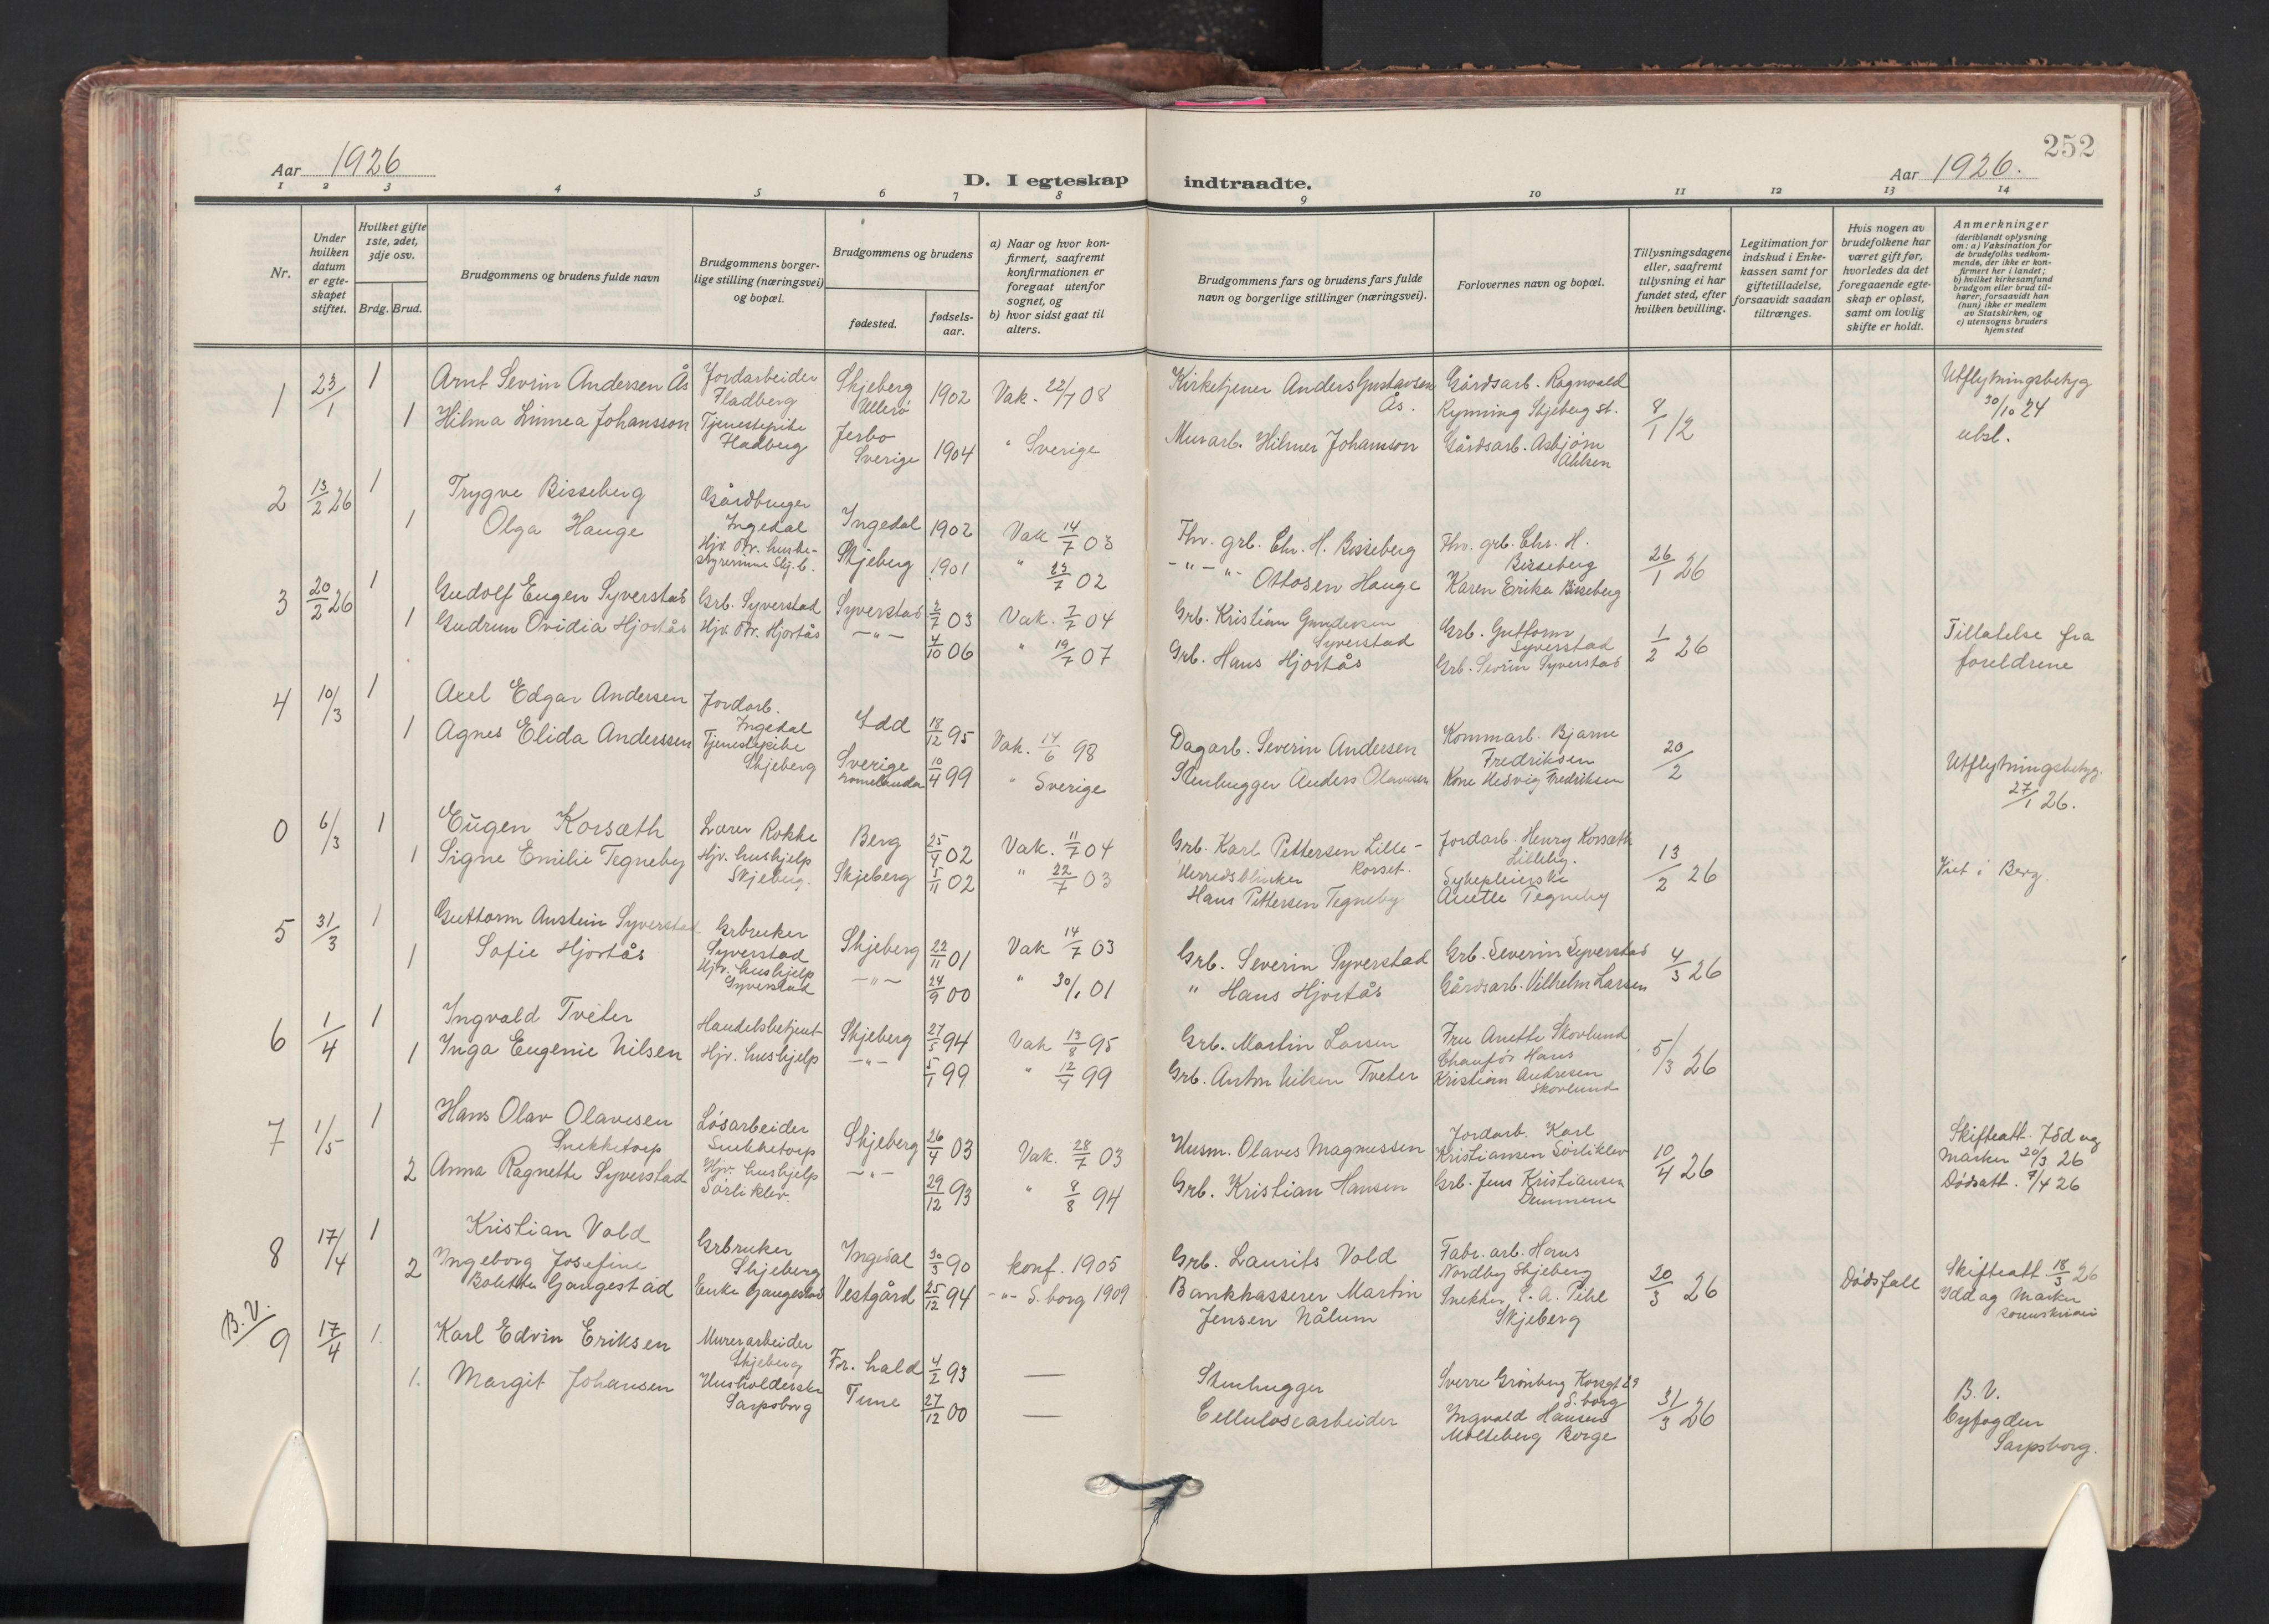 252
Aar 1926
D. I egteskap indtraadte.
Aar 1926.
1 2 3 4 5 6 7 8 9 10 11 12 13 14
Nr.
Under hvilken datum er egteskapet stiftet.
Hvilket gifte 1ste, 2det, 3dje osv.
Brdg. Brud.
Brudgommens og brudens fulde navn
Brudgommens borgerlige stilling (næringsvei) og bopæl.
Brudgommens og brudens
fødested.
fødselsaar.
a) Naar og hvor konfirmert, saafremt konfirmationen er foregaat utenfor sognet, og
b) hvor sidst gaat til alters.
Brudgommens fars og brudens fars fulde navn og borgerlige stillinger (næringsvei).
Forlovernes navn og bopæl.
Tillysningsdagene eller, saafremt tillysning ei har fundet sted, efter hvilken bevilling.
Legitimation for indskud i Enkekassen samt for giftetilladelse, forsaavidt saadan tiltrænges.
Hvis nogen av brudefolkene har været gift før, hvorledes da det foregaaende egteskap er opløst, samt om lovlig skifte er holdt.
Anmerkninger
(deriblandt oplysning om: a) Vaksination for de brudefolks vedkommende, der ikke er konfirmert her i landet;
b) hvilket kirkesamfund brudgom eller brud tilhører, forsaavidt han (hun) ikke er medlem av Statskirken, og
c) utensogns bruders hjemsted
1 23/1 1 Arnt Sevrin Andersen Ås Jordarbeider Fladberg Skjeberg Ullerø 1902 Vak. 22/7 08 Kirketjener Anders Gustavsen Ås. Gårdsarb. Ragnvald Rynning Skjeberg st. 8/1 12 Utflytningsbetyg 30/10 24
1 Hilma Linnea Johansson Tjenestepike Fladberg Jerbo Sverige 1904 " Sverige Murarb. Hilmer Johamson Gårdsarb. Asbjørn Ahlsen ubsl.
2 13/2 26 1 Trygve Bisseberg Gårdbruger Ingedal Ingedal 1902 Vak 14/7 03 Fhv. grb. Chr. H. Bisseberg Fhv. grb. Chr. H. Bisseberg 26/1 26
1 Olga Hauge Hjv. Dtr. husbestyrerinne Skj.b. Skjeberg 1901 " 23/7 02 - " - " - Ottosen Hauge Karen Erika Bisseberg
3 20/2 26 1 Gudolf Eugen Syverstad Grb. Syverstad Syverstad 2/7 03 Vak. 7/7 04 Grb. Kristian Gundersen Syverstad Grb. Guttorm Syverstad 1/2 26 Tillatelse fra foreldrene
1 Gudrun Ovidia Hjortås Hjv. Dtr. Hjortås - " - 4/10 06 " 19/7 07 Grb. Hans Hjortås Grb. Sevrin Syverstad
4 10/3 1 Axel Edgar Andersen Jordarb. Ingedal Idd 18/12 95 Vak. 14/6 98 Dagarb. Severin Andersen Kommarb. Bjarne Fredriksen 20/2
1 Agnes Elida Anderssen Tjenestepike Skjeberg Sverige 10/4 99 " Sverige Stenhugger Anders Olavesen Kone Hedvig Fredriksen Utflytningsbetyg. 27/1 26.
0 6/3 1 Eugen Korsæth Lærer Rokke Berg 25/4 02 Vak. 11/7 04 Grb. Karl Pettersen Lille-Korset. Jordarb. Henry Korsæth Lilleby. 13/2 26 Viet i Berg.
1 Signe Emilie Tegneby Hjv. hushjelp Skjeberg. Skjeberg 5/11 02 " 22/7 03 Hans Pettersen Tegneby Sykepleierske Anette Tegneby
5 31/3 1 Guttorm Anstein Syverstad Grbruker Syverstad Skjeberg 22/11 01 Vak 14/7 03 Grb. Severin Syverstad Grb. Severin Syverstad 4/3 26
1 Sofie Hjortås Hjv. hushjelp Syverstad - " - 24/9 00 " 30/1 01 " Hans Hjortås Gårdsarb. Vilhelm Larsen
6 1/4 1 Ingvald Tveter Handelsbetjent Skjeberg 27/5 94 Vak 13/8 95 Grb. Martin Larsen Fru Anette Skovlund 5/3 26
1 Inga Eugenie Nilsen Hjv. hushjelp - " - 5/1 99 " 12/7 99 Grb. Anton Nilsen Tveter Chaufør Hans Kristian Andresen Skovlund
7 1/5 1 Hans Olav Olavesen Snekketorp Løsarbeider Snekketorp Skjeberg 26/4 03 Vak. 28/7 03 Husm. Olaves Magnussen Jordarb. Karl Kristiansen Sørliklev 10/4 26 Skifteatt. Idd og Marker 20/3 26
2 Anna Ragnette Syverstad Hjv. hushjelp Sørliklev. - " - 29/12 93 " 8/8 94 Grb. Kristian Hansen Grb. Jens Kristiansen Dødsatt. 9/4 26
8 17/4 1 Kristian Vold Grbruker Skjeberg Ingedal 30/3 90 konf. 1905 Grb. Laurits Vold Fabr. arb. Hans Nordby Skjeberg 20/3 26 Dødsfall Skifteatt 18/3 26
2 Ingeborg Josefine Bolette Gaugestad Enke Gaugestad Vestgård 25/12 94 - " - S.borg 1909 Bankkasserer Martin Jensen Nålum Snekker C. A. Pihl Skjeberg Idd og Marker sorenskriveri
B.V. 9 17/4 1. Karl Edvin Eriksen Murerarbeider Skjeberg Fr. hald 4/2 93 — Stenhugger Sverre Grønberg Korsgt 29 S.borg 31/3 26 B.V. byfogden Sarpsborg.
1. Margit Johansen Husholderske Sarpsborg Tune 27/12 00 — Cellulosearbeider Ingvald Hansen Molteberg Borge